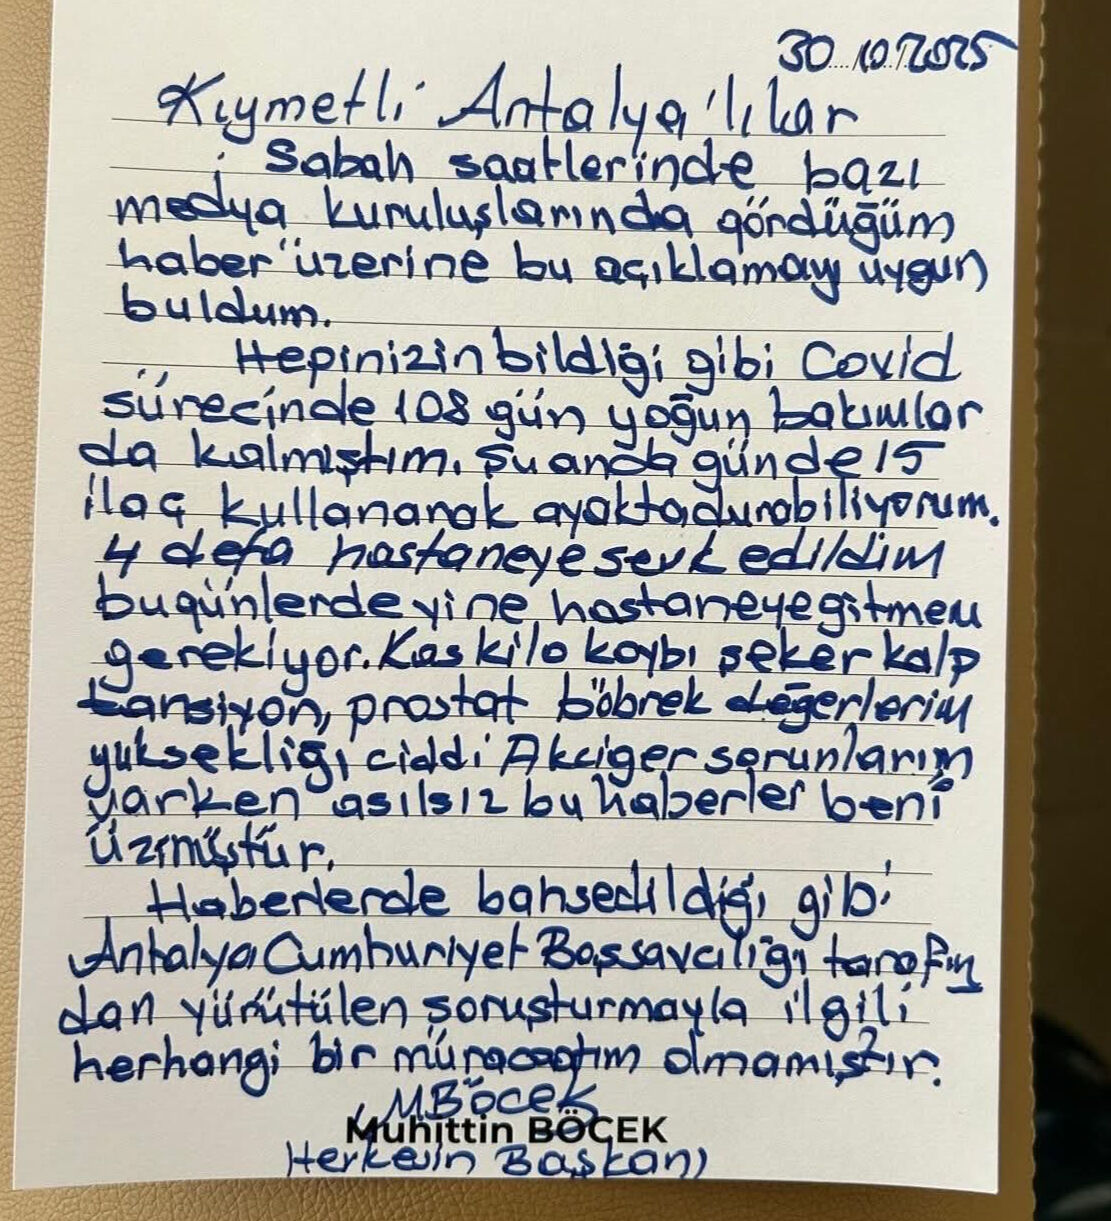 30.10.2025
Kıymetli Antalya'lılar
Sabah saatlerinde bazı
medya kuruluşlarında gördüğüm
haber üzerine bu açıklamayı uygun
buldum.
Hepinizin bildiği gibi Covid
sürecinde 108 gün yoğun bakımlar
da kalmıştım. Şu anda günde 15
ilaç kullanarak ayakta durabiliyorum.
4 defa hastaneye sevk edildim
bugünlerde yine hastaneye gitmem
gerekiyor. Kas kilo kaybı şeker kalp
tansiyon, prostat böbrek değerlerim
yüksekliği ciddi Akciğer sorunlarım
varken asılsız bu haberler beni
üzmüştür.
Haberlerde bahsedildiği gibi
Antalya Cumhuriyet Başsavcılığı tarafın
dan yürütülen soruşturmayla ilgili
herhangi bir müracaatım olmamıştır.
MBöcek
Muhittin BÖCEK
Herkesin Başkanı